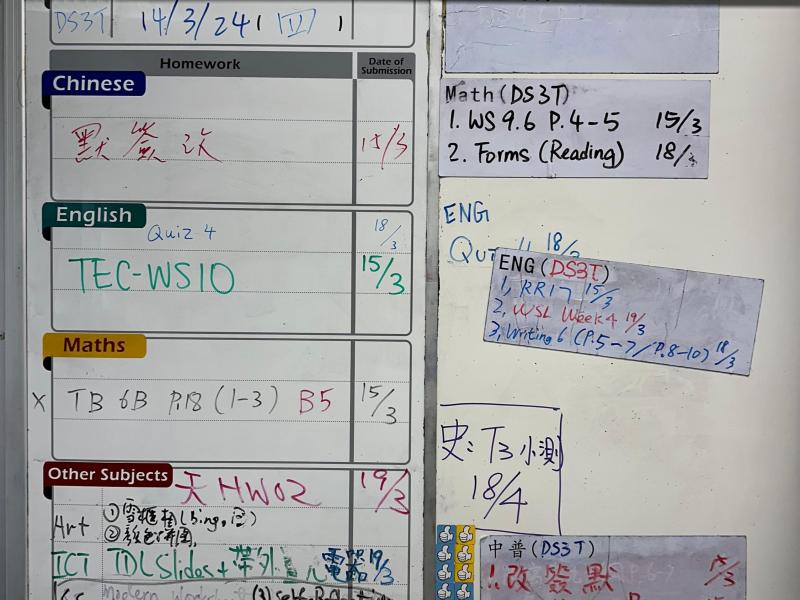 DS3T 14/3/24 (四)
Homework Date of Submission
Chinese
默簽改 15/3
English
Quiz 4 18/3
TEC-WS10 15/3
Maths
X TB 6B P.18 (1-3) B5 15/3
Other Subjects
天 HW02 19/3
Art ①
②
ICT TDL Slides + 帶外 電器 19/3
Math (DS3T)
1. WS 9.6 P.4-5 15/3
2. Forms (Reading) 18/3
ENG
18/3
ENG (DS3T)
1, RR17 15/3
2, WSL Week4 19/3
3, Writing 6 (P.5-7/P.8-10) 18/3
史: T3 小測
18/4
中普 (DS3T)
1. 改簽默 15/3